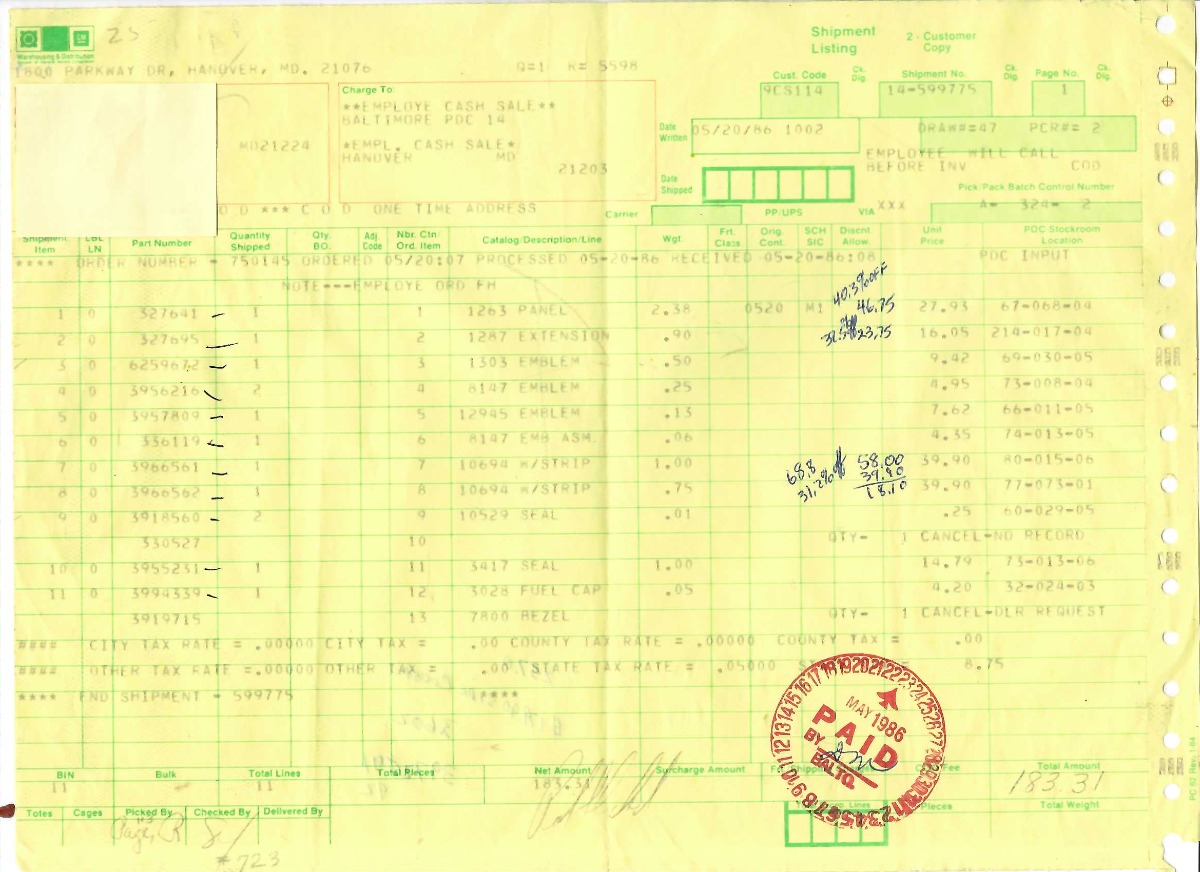 GM
Warehousing & Distribution
23
Shipment Listing
2 - Customer Copy
1800 PARKWAY DR, HANOVER, MD. 21076 Q=1 R= 5598
Cust. Code Ck. Dig. Shipment No. Ck. Dig. Page No. Ck. Dig.
9CS114 14-599775 1
Charge To:
**EMPLOYE CASH SALE**
BALTIMORE PDC 14
*EMPL. CASH SALE*
HANOVER MD
21203
MD21224
Date Written 05/20/86 1002 DRAW#=47 PCR#= 2
EMPLOYEE WILL CALL
BEFORE INV COD
Date Shipped
Pick/Pack Batch Control Number
XXX A= 324= 2
O D *** C O D ONE TIME ADDRESS
Carrier PP/UPS VIA
Shipment Item LBL LN Part Number Quantity Shipped Qty. BO. Adj. Code Nbr. Ctn: Ord. Item Catalog/Description/Line Wgt. Frt. Class Orig. Cont. SCH SIC Discnt Allow. Unit Price PDC Stockroom Location
**** ORDER NUMBER - 750145 ORDERED 05/20:07 PROCESSED 05-20-86 RECEIVED 05-20-86:08 PDC INPUT
NOTE---EMPLOYE ORD FH
40.3% OFF
1 0 327641 1 1 1263 PANEL 2.38 0520 M1 46.75 27.93 67-068-04
2 0 327695 1 2 1287 EXTENSION .90 23.75 16.05 214-017-04
3 0 6259672 1 3 1303 EMBLEM .50 9.42 69-030-05
4 0 3956216 2 4 8147 EMBLEM .25 4.95 73-008-04
5 0 3957809 1 5 12945 EMBLEM .13 7.62 66-011-05
6 0 336119 1 6 8147 EMB ASM. .06 4.35 74-013-05
7 0 3966561 1 7 10694 W/STRIP 1.00 68.8 58.00 39.90 80-015-06
31.2% 39.90
8 0 3966562 1 8 10694 W/STRIP .75 18.10 39.90 77-073-01
9 0 3918560 2 9 10529 SEAL .01 .25 60-029-05
330527 10 QTY- 1 CANCEL-NO RECORD
10 0 3955231 1 11 3417 SEAL 1.00 14.79 73-013-06
11 0 3994339 1 12 3028 FUEL CAP .05 4.20 32-024-03
3919715 13 7800 BEZEL QTY- 1 CANCEL-DLR REQUEST
#### CITY TAX RATE = .00000 CITY TAX = .00 COUNTY TAX RATE = .00000 COUNTY TAX = .00
#### OTHER TAX RATE =.00000 OTHER TAX = .00 STATE TAX RATE = .05000 8.75
**** END SHIPMENT - 599775 ****
MAY 1986
PAID
BY
BALTO.
BIN Bulk Total Lines Total Pieces Net Amount Surcharge Amount Fee Total Amount
11 11 183.31 183.31
Totes Cages Picked By Checked By Delivered By Lines Pieces Total Weight
Page, R
#723
PC 62 Rev. 1-84